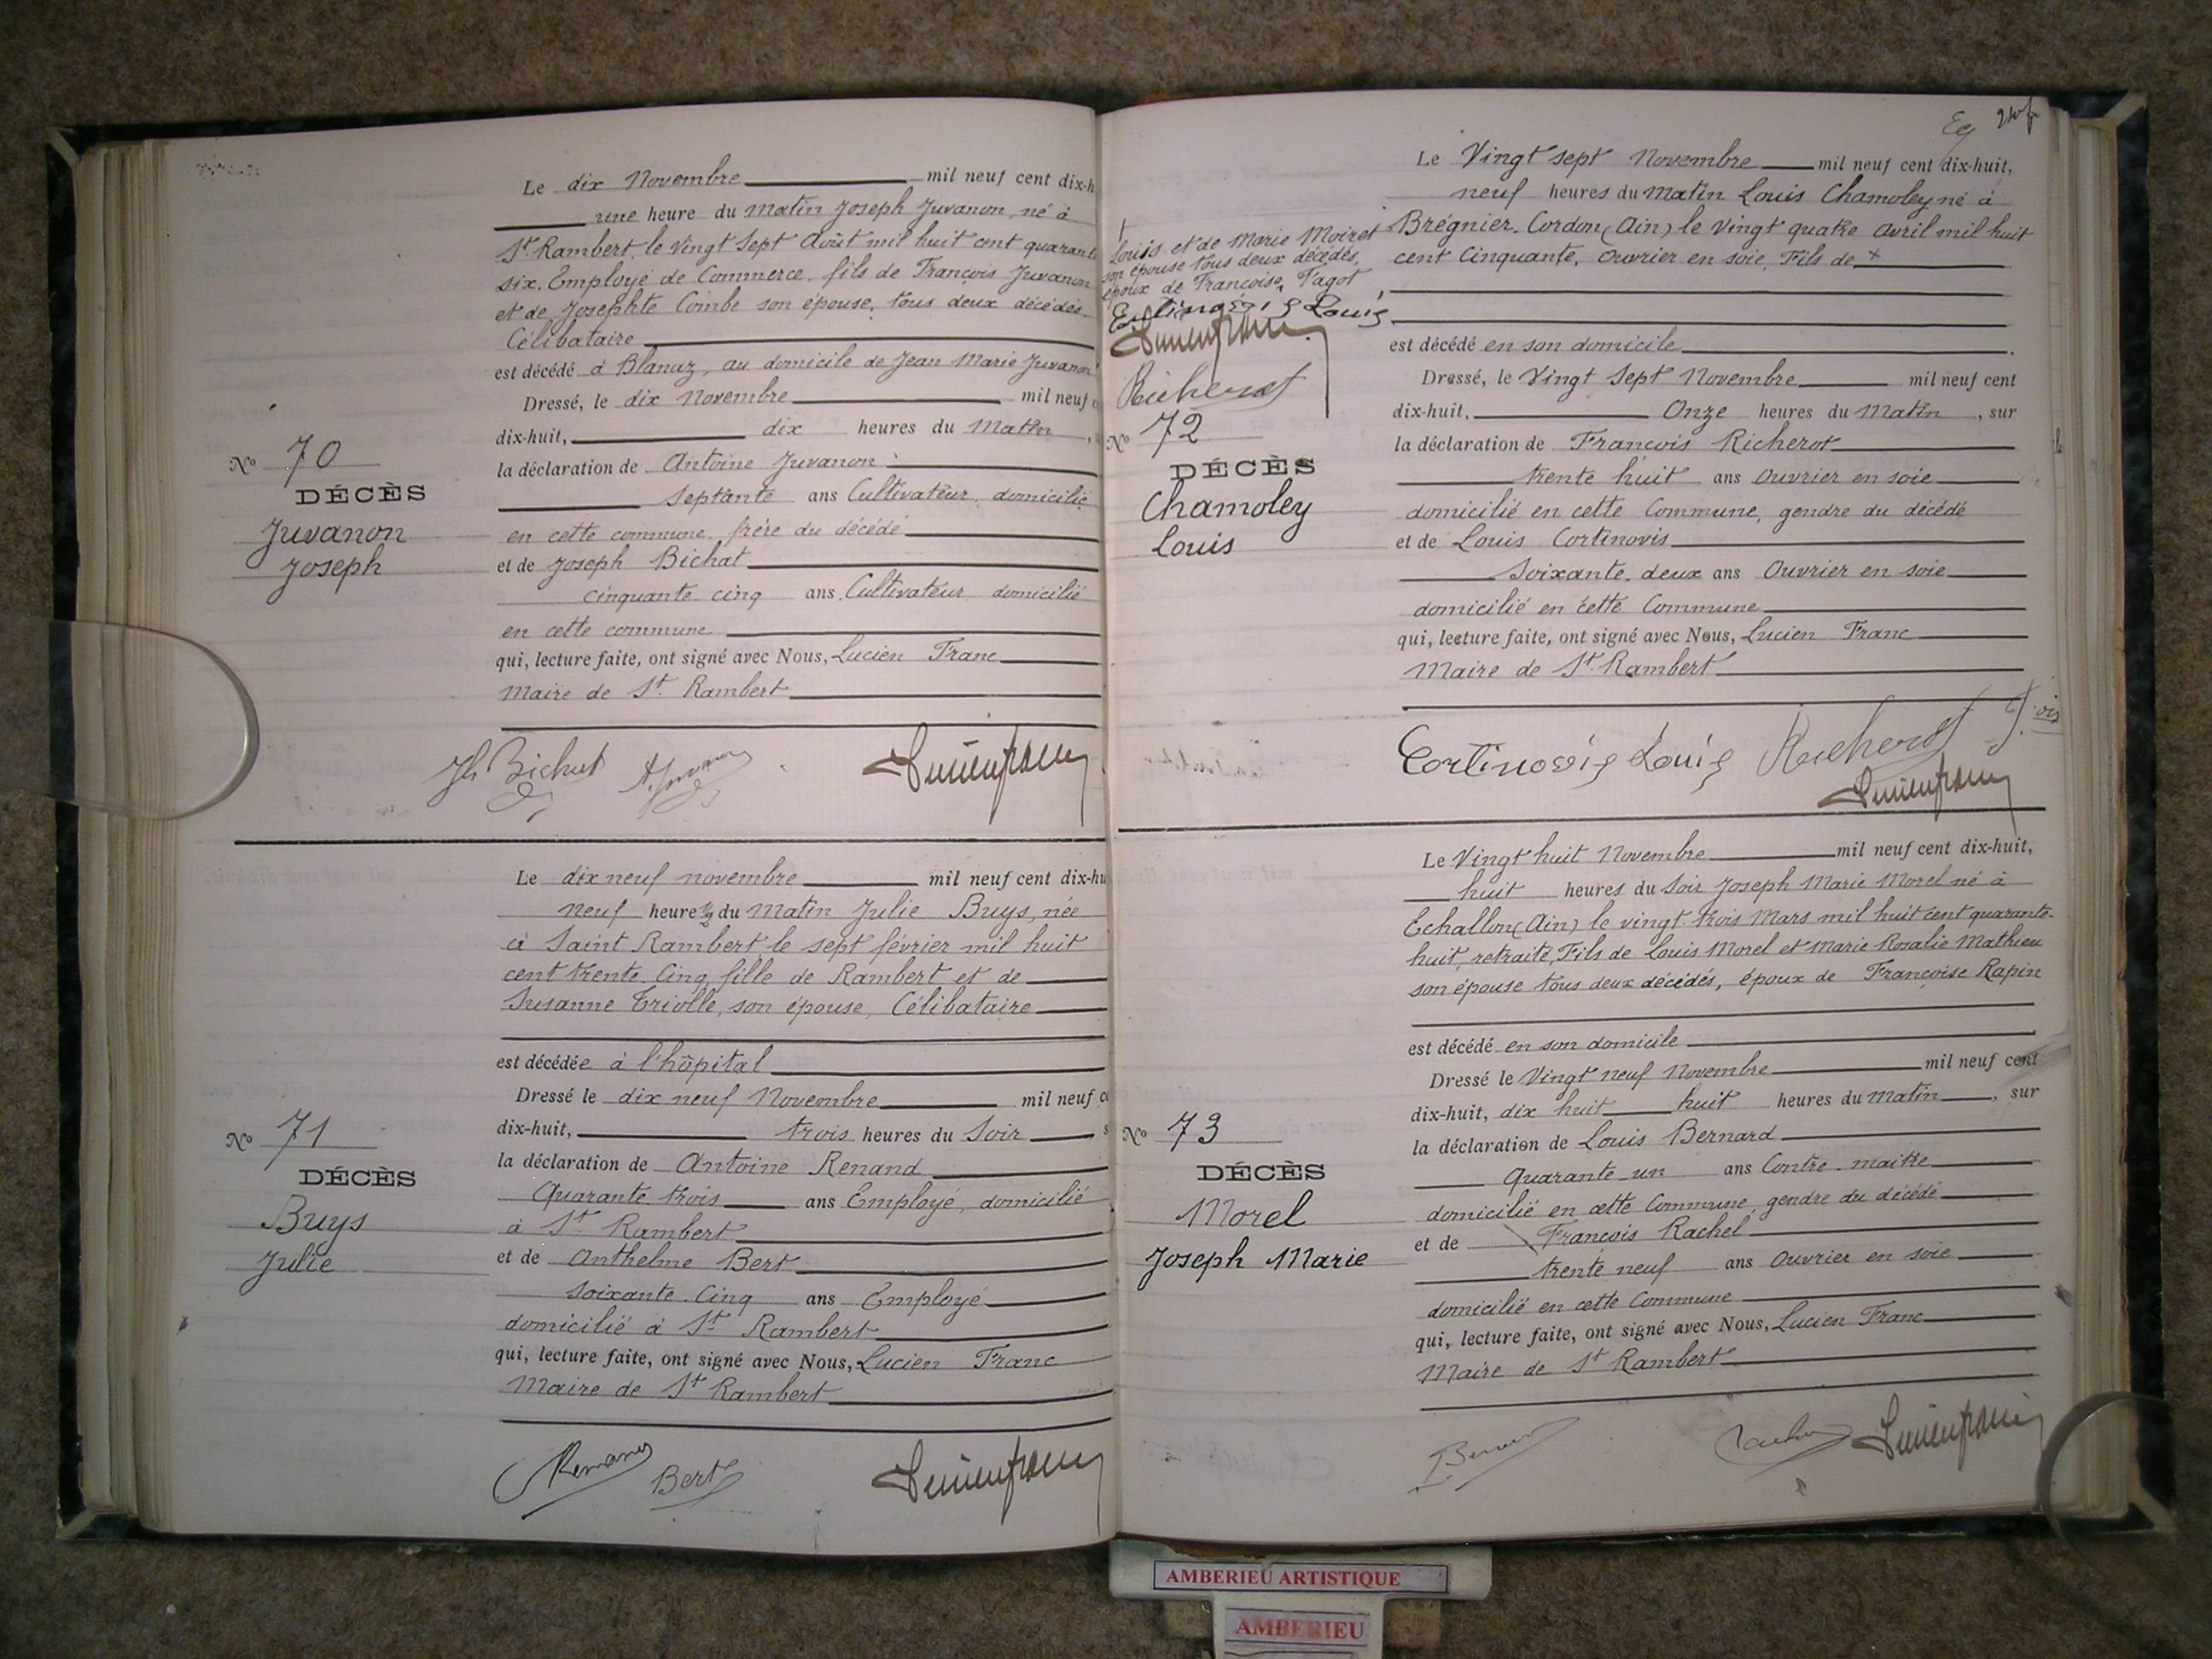 Le dix Novembre mil neuf cent dix-h
une heure du Matin Joseph Juvanon, né à
St. Rambert, le Vingt Sept Août mil huit cent quarante
six. Employé de Commerce, fils de François Juvanon
et de Josephte Combe son épouse, tous deux décédés.
Célibataire
est décédé à Blanaz, au domicile de Jean Marie Juvanon
Dressé, le dix Novembre mil neuf
dix-huit, dix heures du Matin
la déclaration de Antoine Juvanon
Septante ans Cultivateur domicilié
en cette commune, frère du décédé
et de Joseph Bichat
cinquante cinq ans Cultivateur domicilié
en cette commune
qui, lecture faite, ont signé avec Nous, Lucien Franc
Maire de St. Rambert
No 70
DÉCÈS
Juvanon
Joseph
Jh Bichat
Le dix neuf novembre mil neuf cent dix-hu
Neuf heure ½ du Matin Julie Buys, née
à Saint Rambert, le sept février mil huit
cent trente. Cinq, fille de Rambert et de
Susanne Triolle, son épouse, Célibataire
est décédée à l'hôpital
Dressé le dix neuf Novembre mil neuf c
dix-huit, trois heures du Soir
la déclaration de Antoine Renand
Quarante trois ans Employé, domicilié
à St. Rambert
et de Anthelme Bert
Soixante. Cinq ans Employé
domicilié à St. Rambert
qui, lecture faite, ont signé avec Nous, Lucien Franc
Maire de St Rambert
No 71
DÉCÈS
Buys
Julie
Bert
Le Vingt sept Novembre mil neuf cent dix-huit,
neuf heures du Matin Louis Chamoley né à
Brégnier. Cordon (Ain) le Vingt quatre Avril mil huit
cent Cinquante. Ouvrier en soie. Fils de +
+
Louis et de Marie Moiret
son épouse tous deux décédés,
époux de Françoise, Tagot
Cortinovis Louis
Richerot
est décédé en son domicile
Dressé, le Vingt Sept Novembre mil neuf cent
dix-huit, Onze heures du Matin, sur
la déclaration de François Richerot
trente huit ans Ouvrier en soie
domicilié en cette Commune, gendre du décédé
et de Louis Cortinovis
Soixante. deux ans Ouvrier en soie
domicilié en cette Commune
qui, lecture faite, ont signé avec Nous, Lucien Franc
Maire de St. Rambert
No 72
DÉCÈS
Chamoley
Louis
Cortinovis Louis Richerot
Le Vingt huit Novembre mil neuf cent dix-huit,
huit heures du Soir Joseph Marie Morel né à
Echallon (Ain) le vingt. trois Mars mil huit cent quarante.
huit, retraité, Fils de Louis Morel et Marie Rosalie Mathieu
son épouse tous deux décédés, époux de Françoise Rapin
est décédé en son domicile
Dressé le Vingt neuf Novembre mil neuf cent
dix-huit, dix huit huit heures du Matin, sur
la déclaration de Louis Bernard
Quarante un ans Contre. maitre
domicilié en cette Commune, gendre du décédé
et de François Rachel
trente neuf ans Ouvrier en soie
domicilié en cette Commune
qui, lecture faite, ont signé avec Nous, Lucien Franc
Maire de St Rambert
No 73
DÉCÈS
Morel
Joseph Marie
AMBERIEU ARTISTIQUE
AMBERIEU